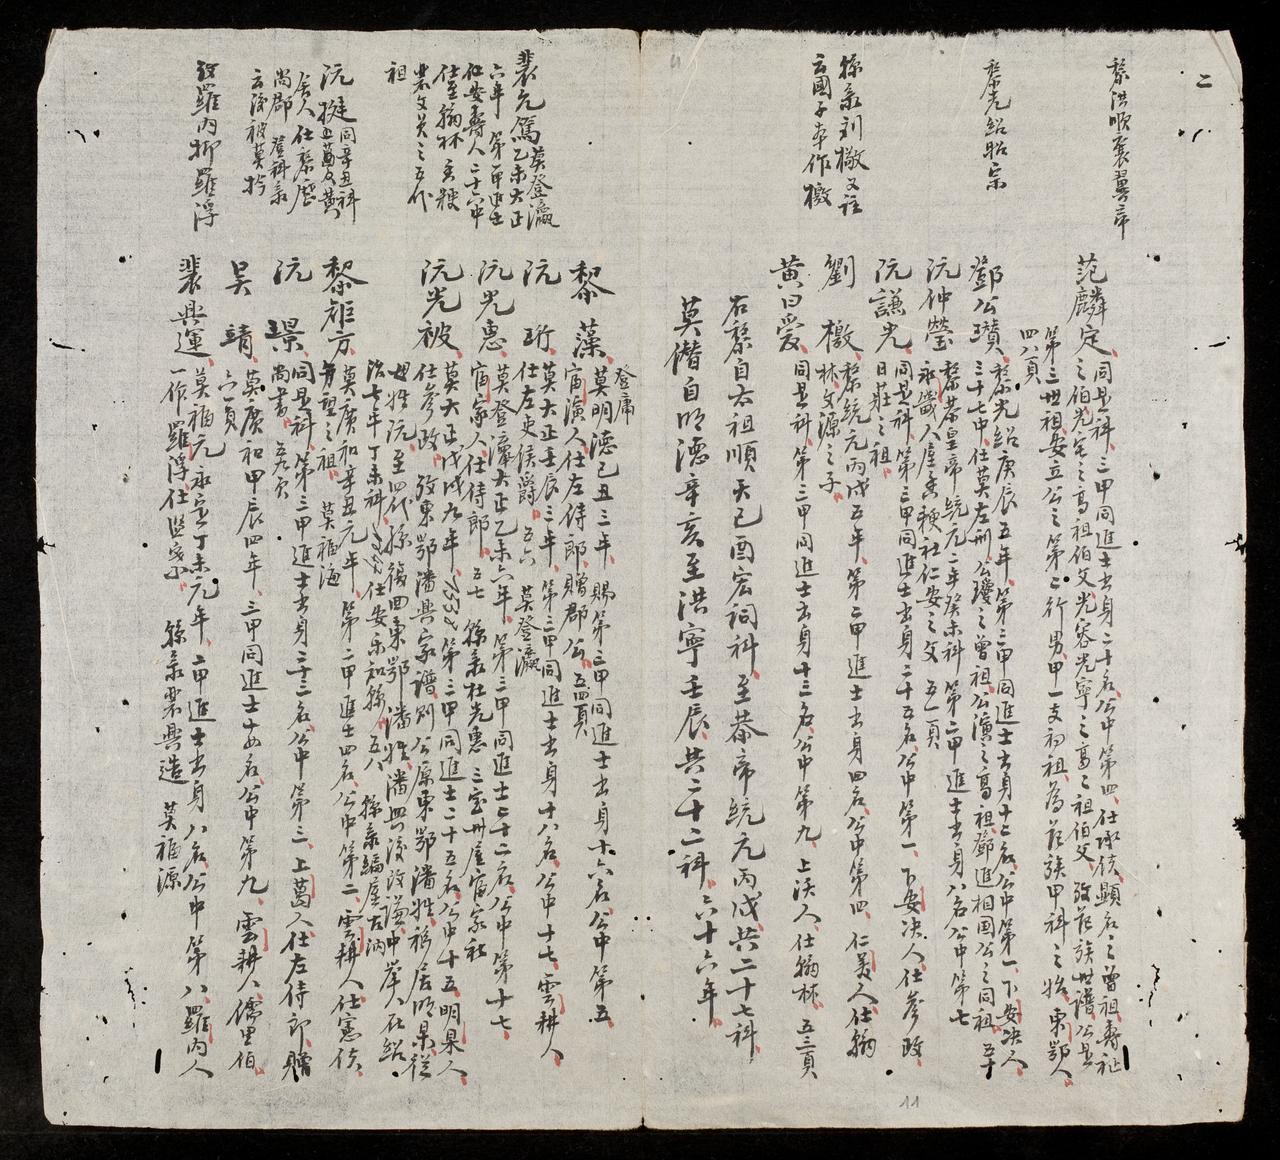 二
黎洪順襄翼帝
范麟定、同是科、三甲同進士出身二十名公中第四、仕承使、顯名之曾祖、壽祉
之伯、光宅之高祖伯父、光容光寧之高高祖伯父、攷范族世譜、公是
第三世祖、安立公之第二行男、甲一支初祖、為范族甲科之始、東鄂人、
四八頁
黎光紹昭宗
鄧公瓚、黎光紹庚辰五年、第三甲同進士出身十二名、公中第一、下安决人、
三十七中、仕莫左刑、公瓊之曾祖、公演之高祖、鄧進相國公之同祖、五十
阮仲瑩、黎恭皇帝統元二年癸未科、第二甲進士出身八名公中第七
永歲人屋香粳社仁安之父 五一頁
阮謙光、同是科、第三甲同進士出身二十五名、公中第一、下安决人、仕參政、
日莊之祖、
孫彔刘檄又註
云國子本作檄
劉 檄、黎統元丙戌五年、第二甲進士出身四名、公中第四、仁美人、仕翰
林、文源之子
黃曰爱、同是科、第三甲同進士出身十三名、公中第九、上沃人、仕翰林、五三頁
右黎自太祖順天己酉宏詞科、至恭帝統元丙戌、共二十七科、
莫僭自明德辛亥至洪寧壬辰、共二十二科、六十六年、
登庸
黎 藻、莫明德己丑三年、賜第三甲同進士出身十六名公中第五
富演人、仕左侍郎、贈郡公、五四頁
裴允篤 莫登瀛
乙未大正
六年 第一甲進士
仕安壽人二十六中
仕至翰林玄粳
裴文英之五代
祖
阮 珩、莫大正壬辰三年、第三甲同進士出身十八名、公中十七、雲耕人
仕左吏侯爵、五六 莫登瀛
阮光惠、莫登瀛大正乙未六年、第三甲同進士二十二名、公中第十七
富家人、仕侍郎、五七 孫彔杜光惠 三宝州屋富家社
阮光被、莫大正戊戌九年、1538 第三甲同進士二十五名、公中十五、明杲人、
仕參政、攷東鄂潘興家譜、則公原東鄂潘姓、移居明杲從
母姓阮、至四代孫、復回東鄂潘姓、潘興後改謙、中举人、在紹
治七年丁未科、仕安乐和縣、五八 孫彔編屋古汭
阮 挺 同辛丑科
五葛及黃
舍人仕黎歷
尚郡 登科彔
云後被莫矜
黎矩方、莫廣和辛丑元年、第二甲進士四名、公中第二、雲耕人仕憲使、
莫福海
阮 景、同是科、第三甲進士出身二十三名、公中第三、上葛人仕左侍郎、贈
尚書、五九頁
吳 靖、莫廣和甲辰四年、三甲同進士十四名、公中第九、雲耕人、儒里伯
六一頁
攷羅內抑羅浮
裴興運、莫福元永定丁未元年、二甲進士出身八名、公中第八、羅內人
一作羅浮、仕監察、 孫彔裴興造 莫福源
11